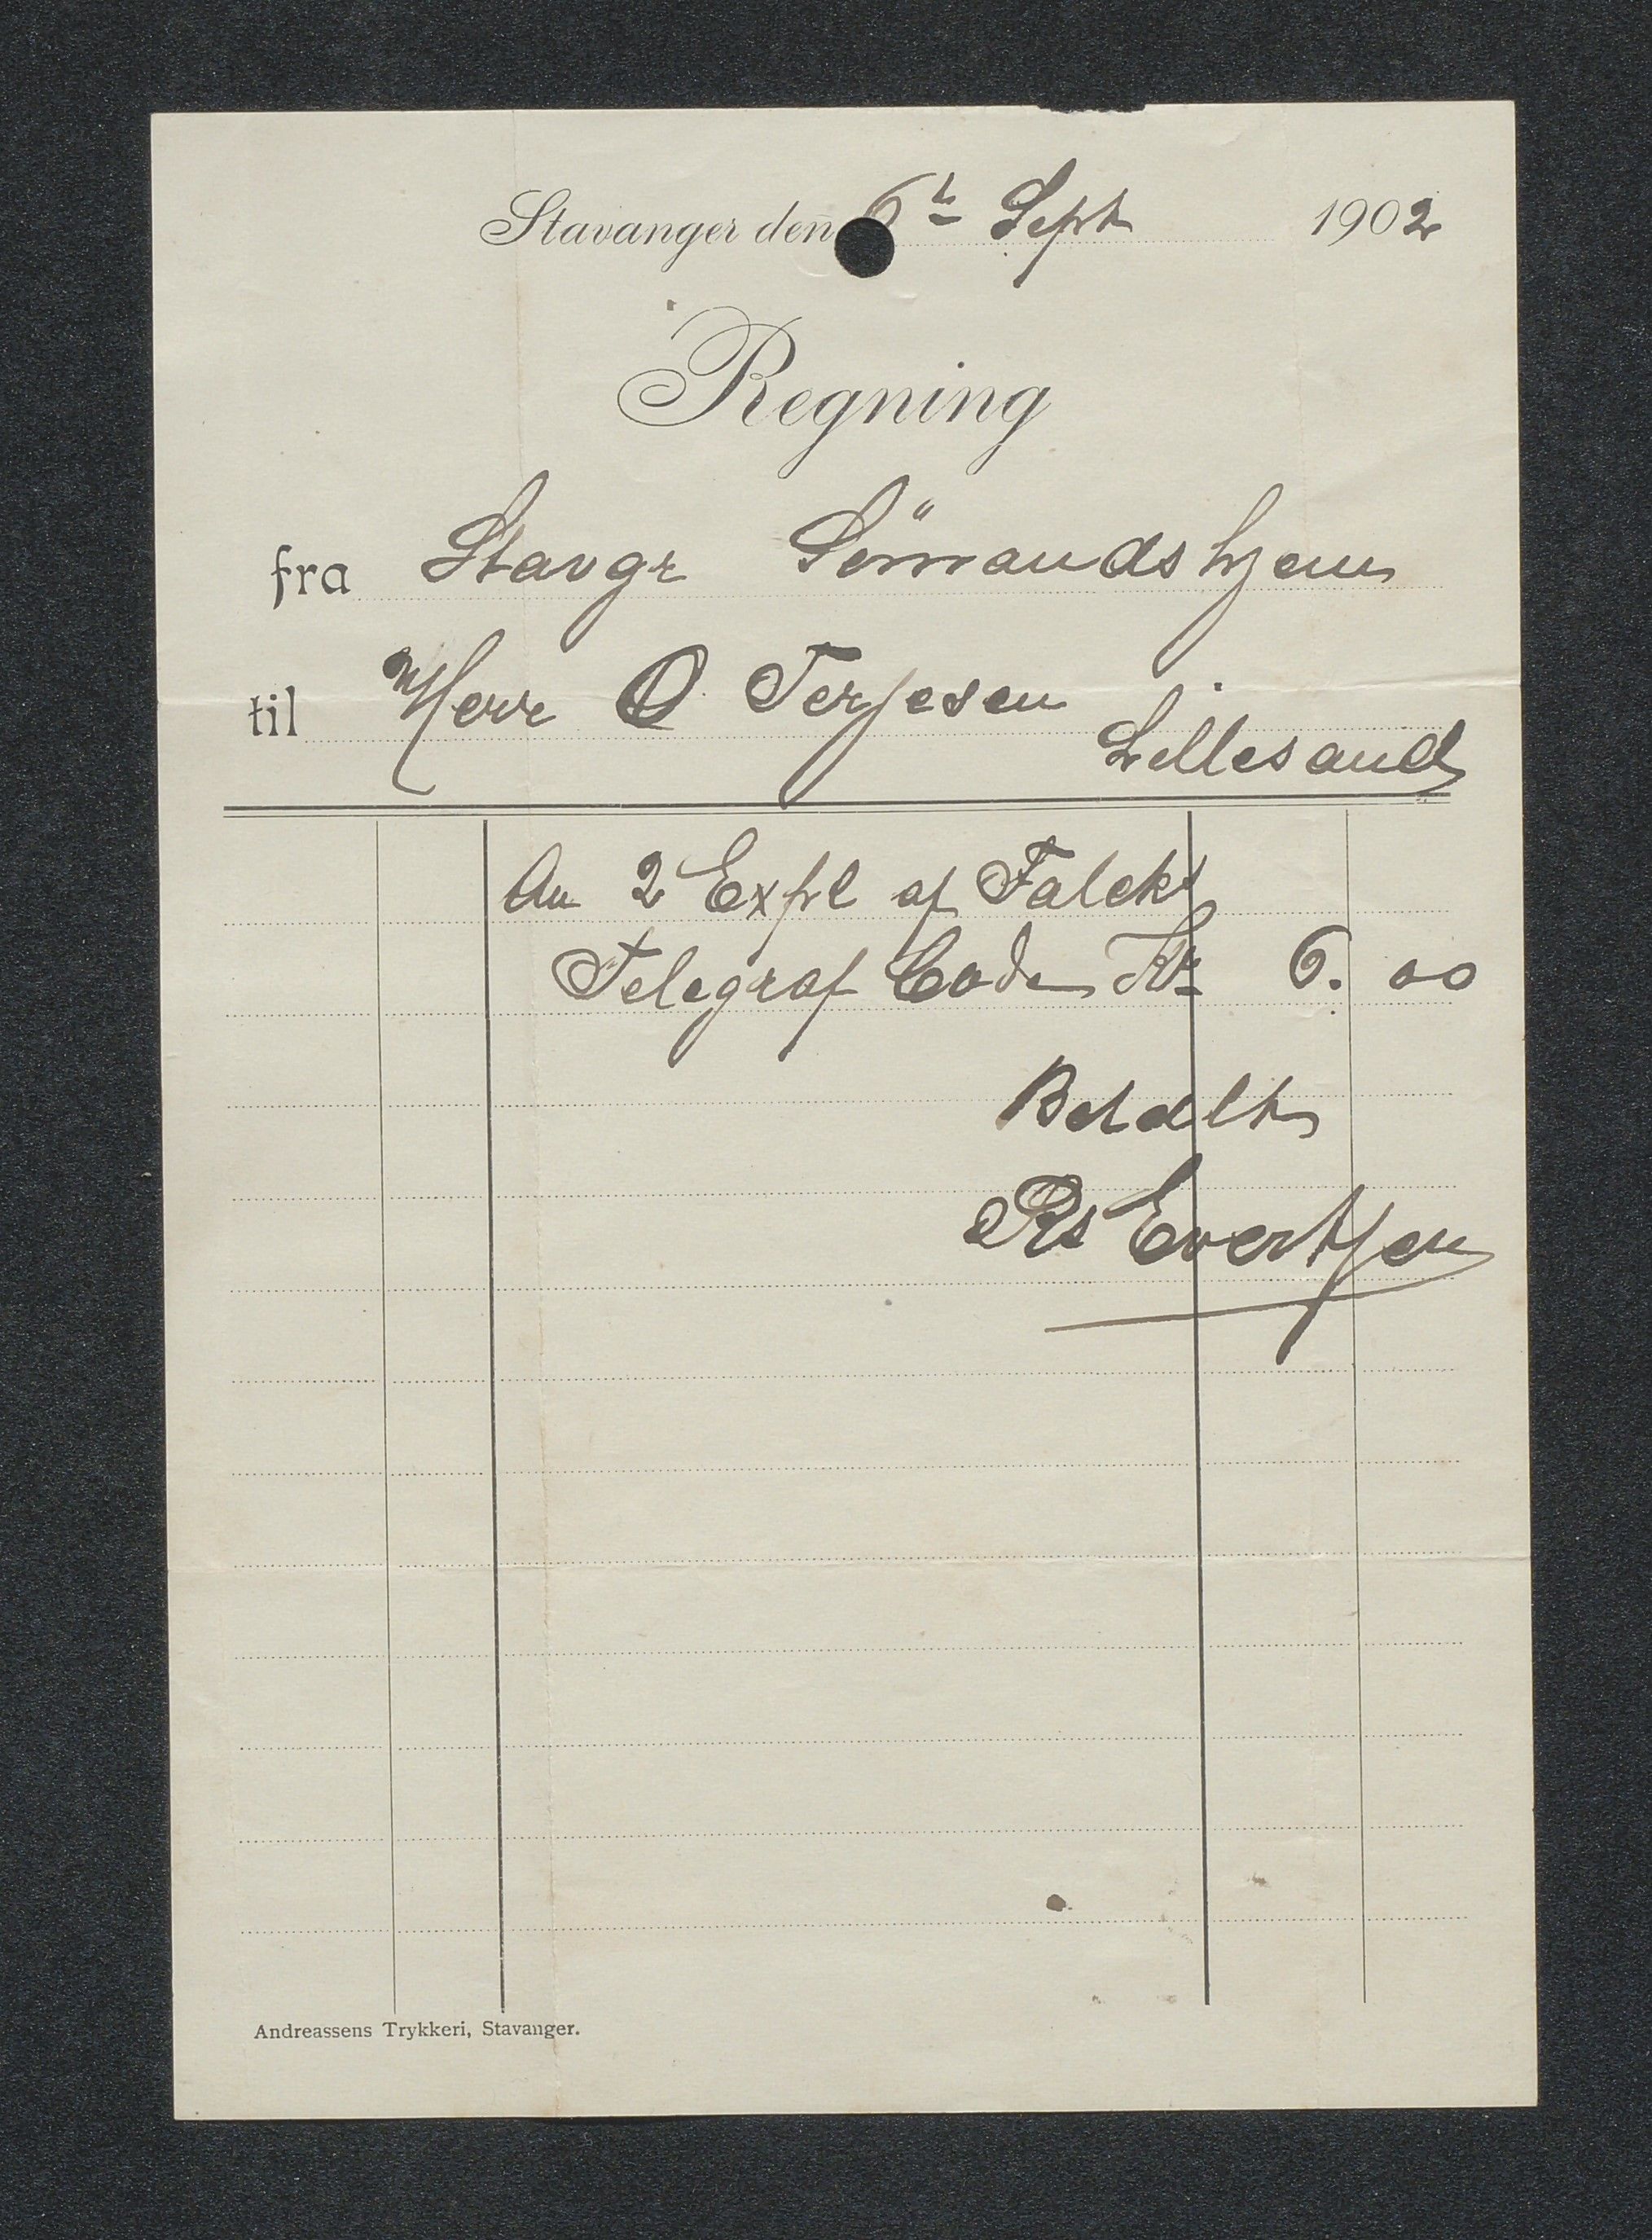 Stavanger den 6te Sept 1902
Regning
fra Stavgr Sömandshjem
til Herr O Terjesen
Lillesand
An 2 Expl af Falcks
Telegraf Code Kr 6.00
Betalt
Rs Evertsen
Andreassens Trykkeri, Stavanger.